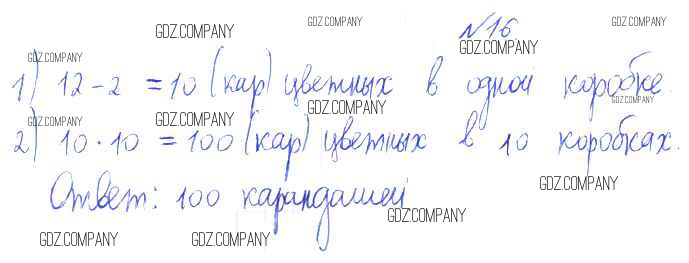 №16
1) 12 - 2 = 10 (кар) цветных в одной коробке.
2) 10 · 10 = 100 (кар) цветных в 10 коробках.
Ответ: 100 карандашей
GDZ.COMPANY GDZ.COMPANY GDZ.COMPANY
GDZ.COMPANY GDZ.COMPANY GDZ.COMPANY
GDZ.COMPANY GDZ.COMPANY
GDZ.COMPANY
GDZ.COMPANY GDZ.COMPANY GDZ.COMPANY